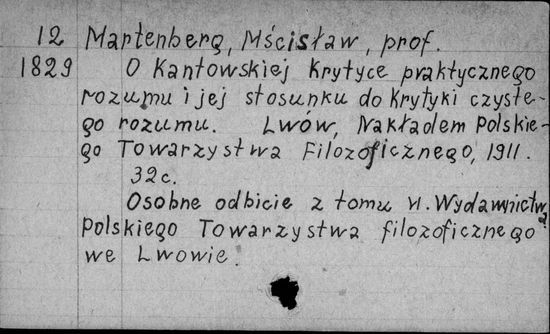 12 Martenberg, Mścisław, prof.
1829 O Kantowskiej Krytyce praktycznego
rozumu i jej stosunku do Krytyki czyste-
go rozumu. Lwów, Nakładem Polskie-
go Towarzystwa Filozoficznego, 1911.
32c.
Osobne odbicie z tomu VI. Wydawnictwa
Polskiego Towarzystwa filozoficznego
we Lwowie.